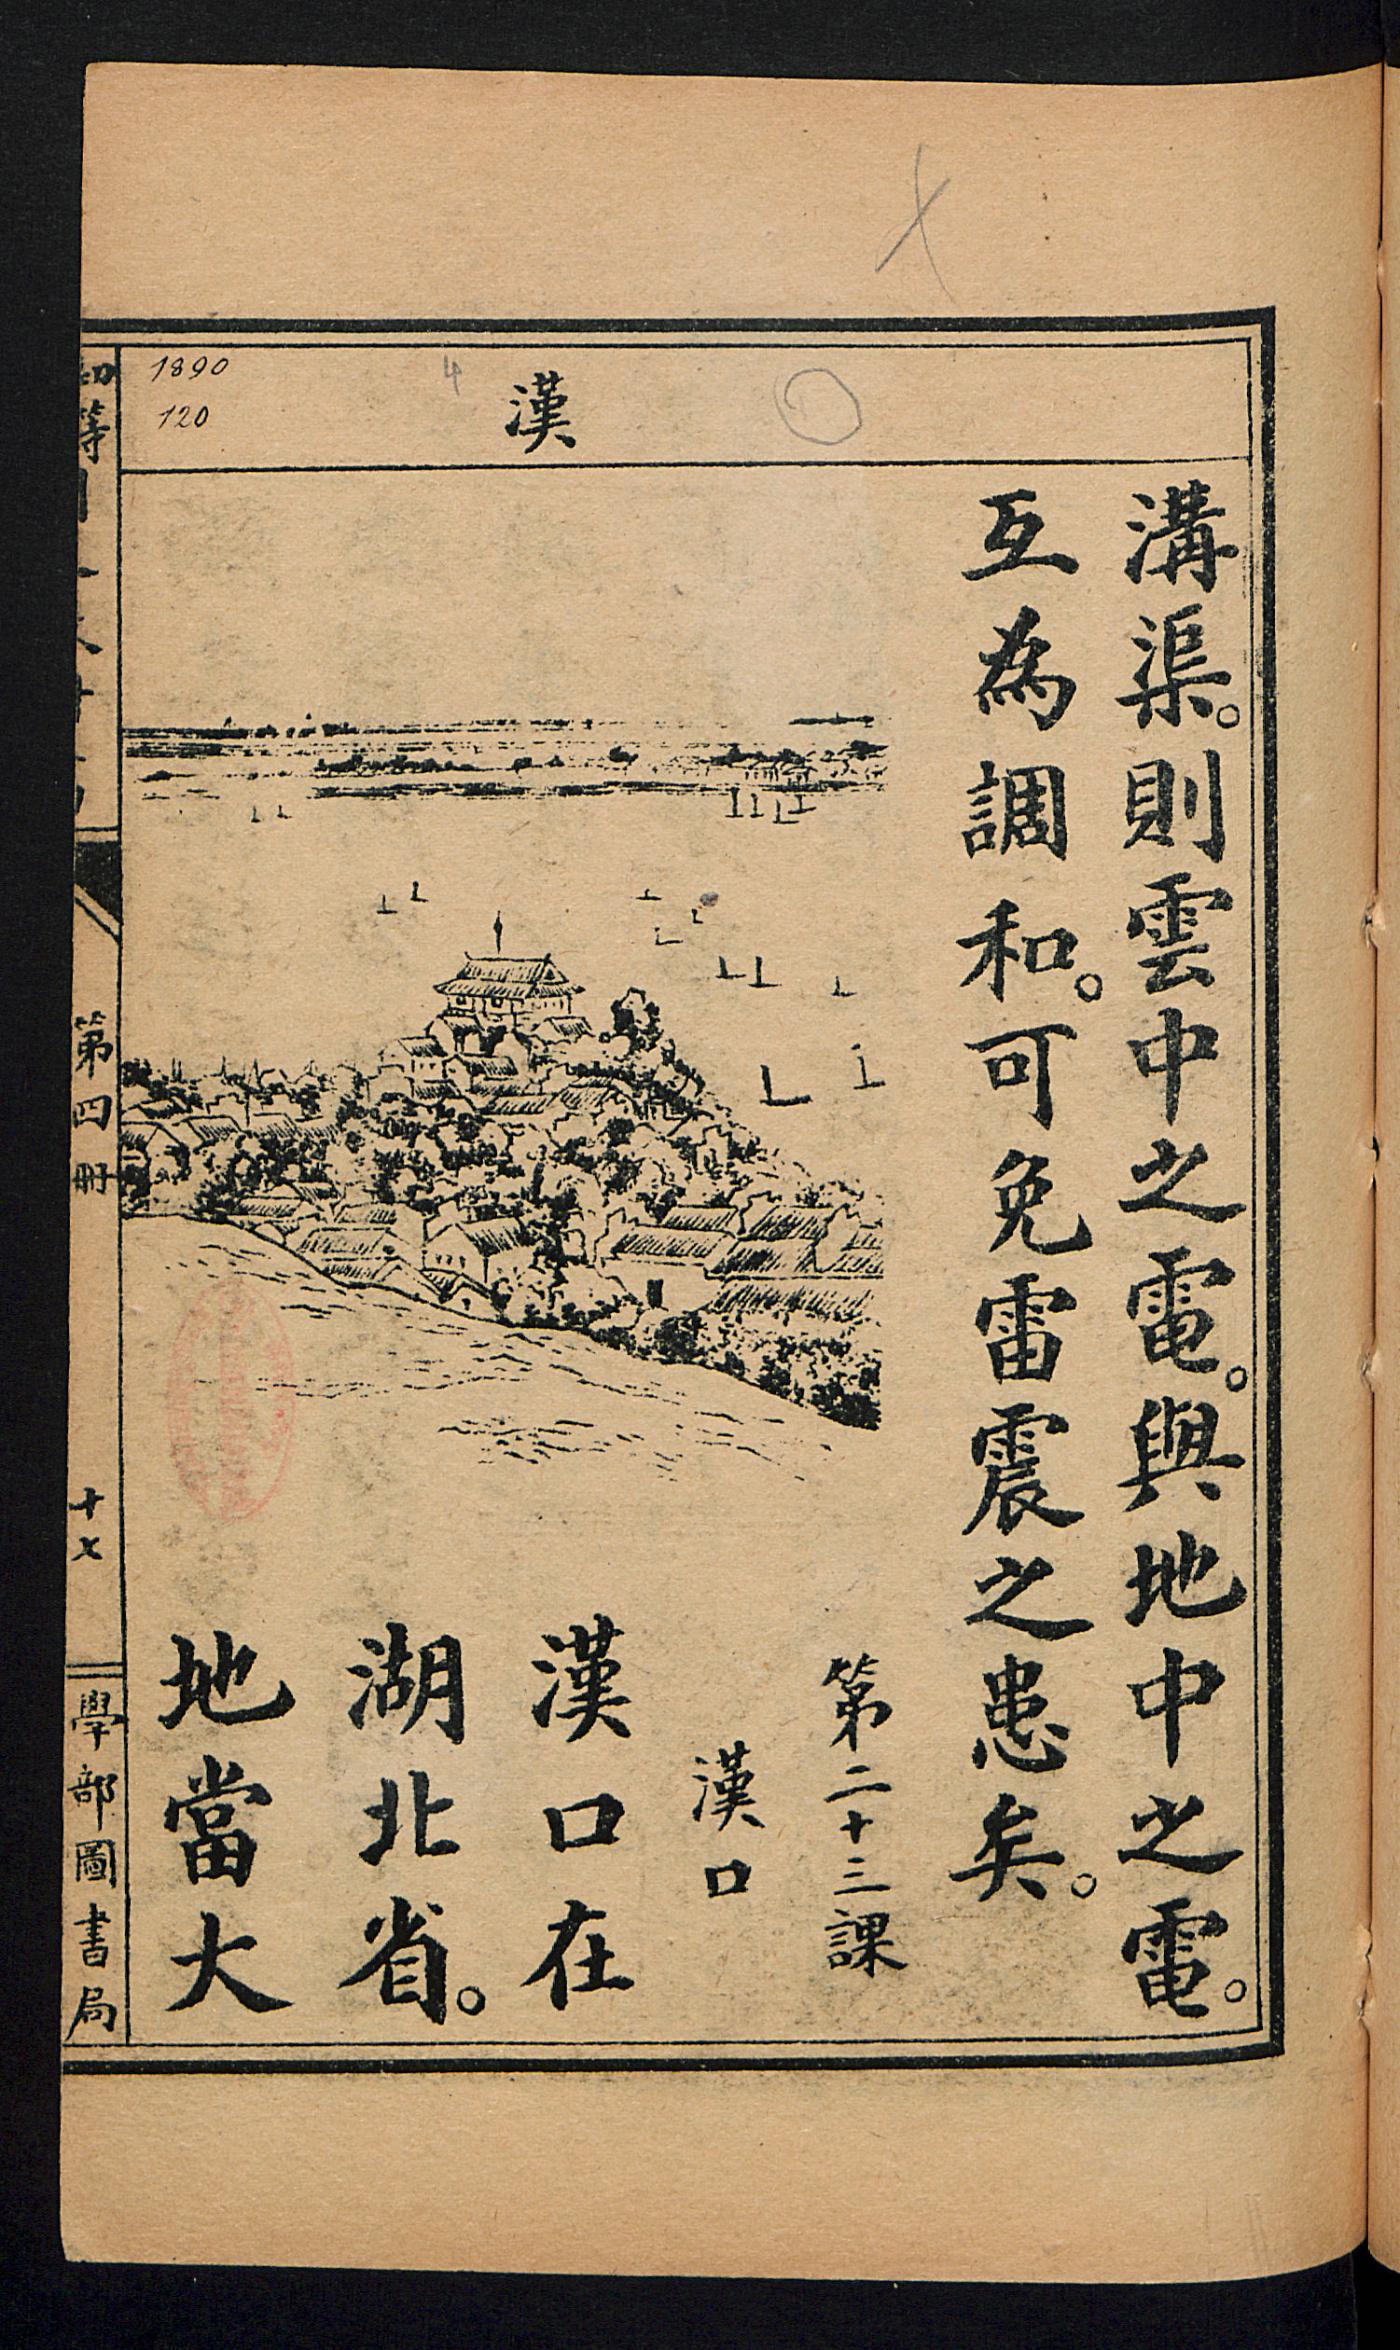 漢
溝渠。則雲中之電。與地中之電。
互為調和。可免雷震之患矣。
第二十三課
漢口
漢口在
湖北省。
地當大
1890
120
4
等
第四冊
十七
學部圖書局